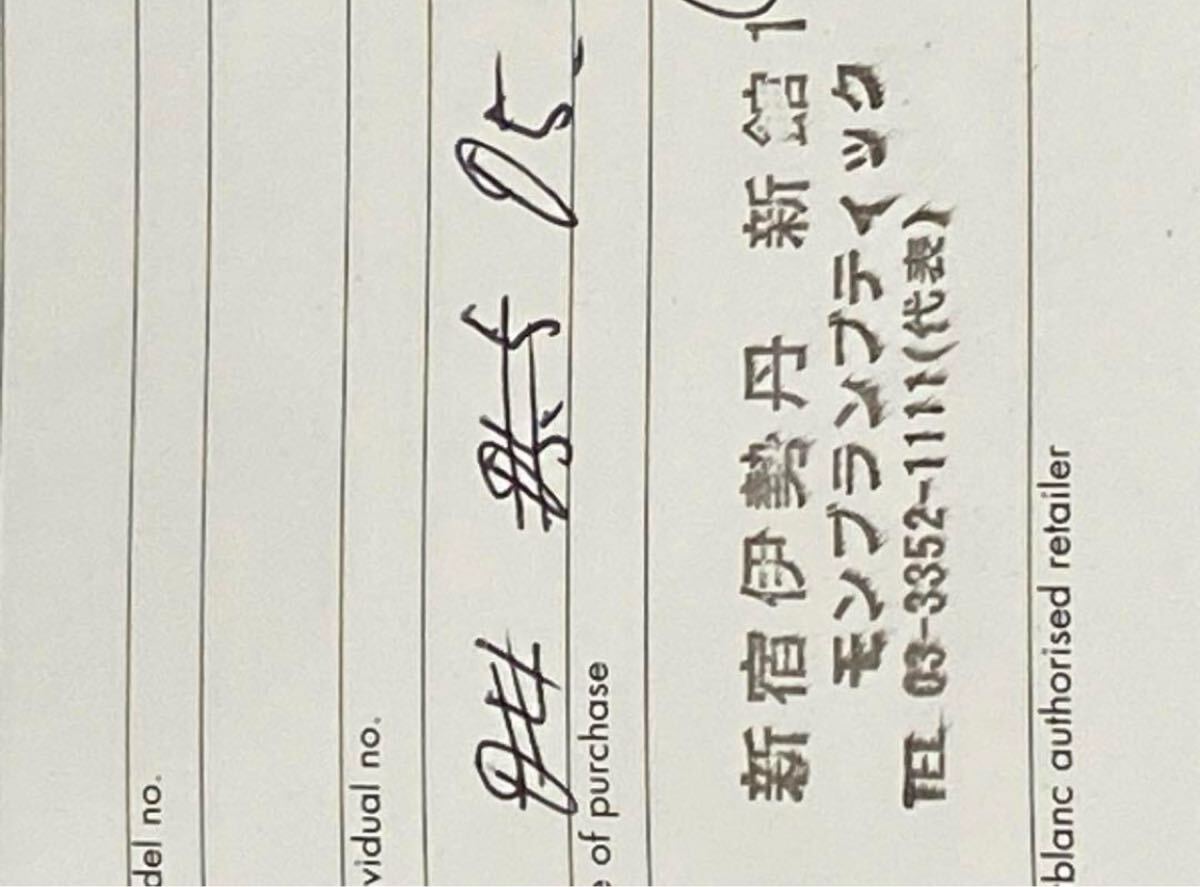 del no.
vidual no.
05
of purchase
新宿伊勢丹 新館 1
モンブランブティック
TEL 03-3352-1111(代表)
blanc authorised retailer